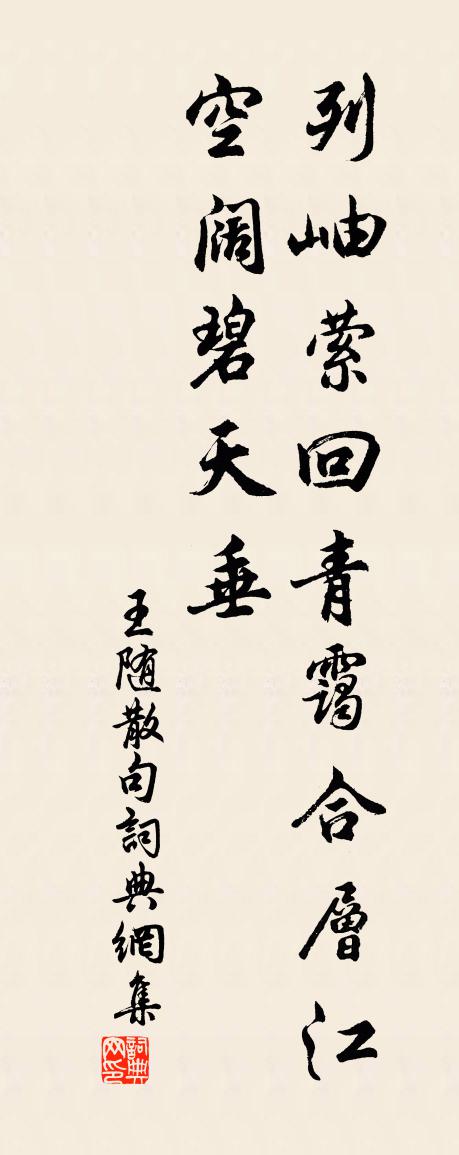 列岫萦回青霭合層江
空阔碧天垂
王随散句詞典網集
詞典网印